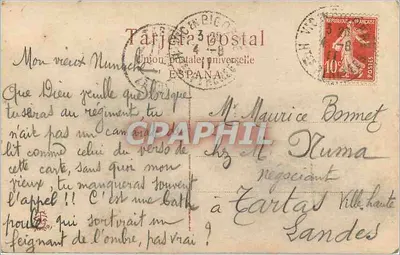 Tarjeta Postal
Union postale universelle
ESPAÑA
Mon vieux Numa
Que Dieu veuille que lorsque
tu seras du régiment, tu
n'ait pas un camarade
lit comme celui du verso de
cette carte, sans quoi mon
vieux, tu manqueras souvent
l'appel !! C'est une
poule qui sortirait un
feignant de l'ombre, pas vrai ?
M. Maurice Bonnet
chez M. Numa
négociant
à Tartas Ville haute
Landes
10c
3
4-8
CPAPHIL